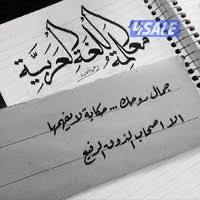 4SALE
معلمة اللغة العربية
جمال روحك... حكاية لا يفهمها
الا اصحاب الذوق الرفيع